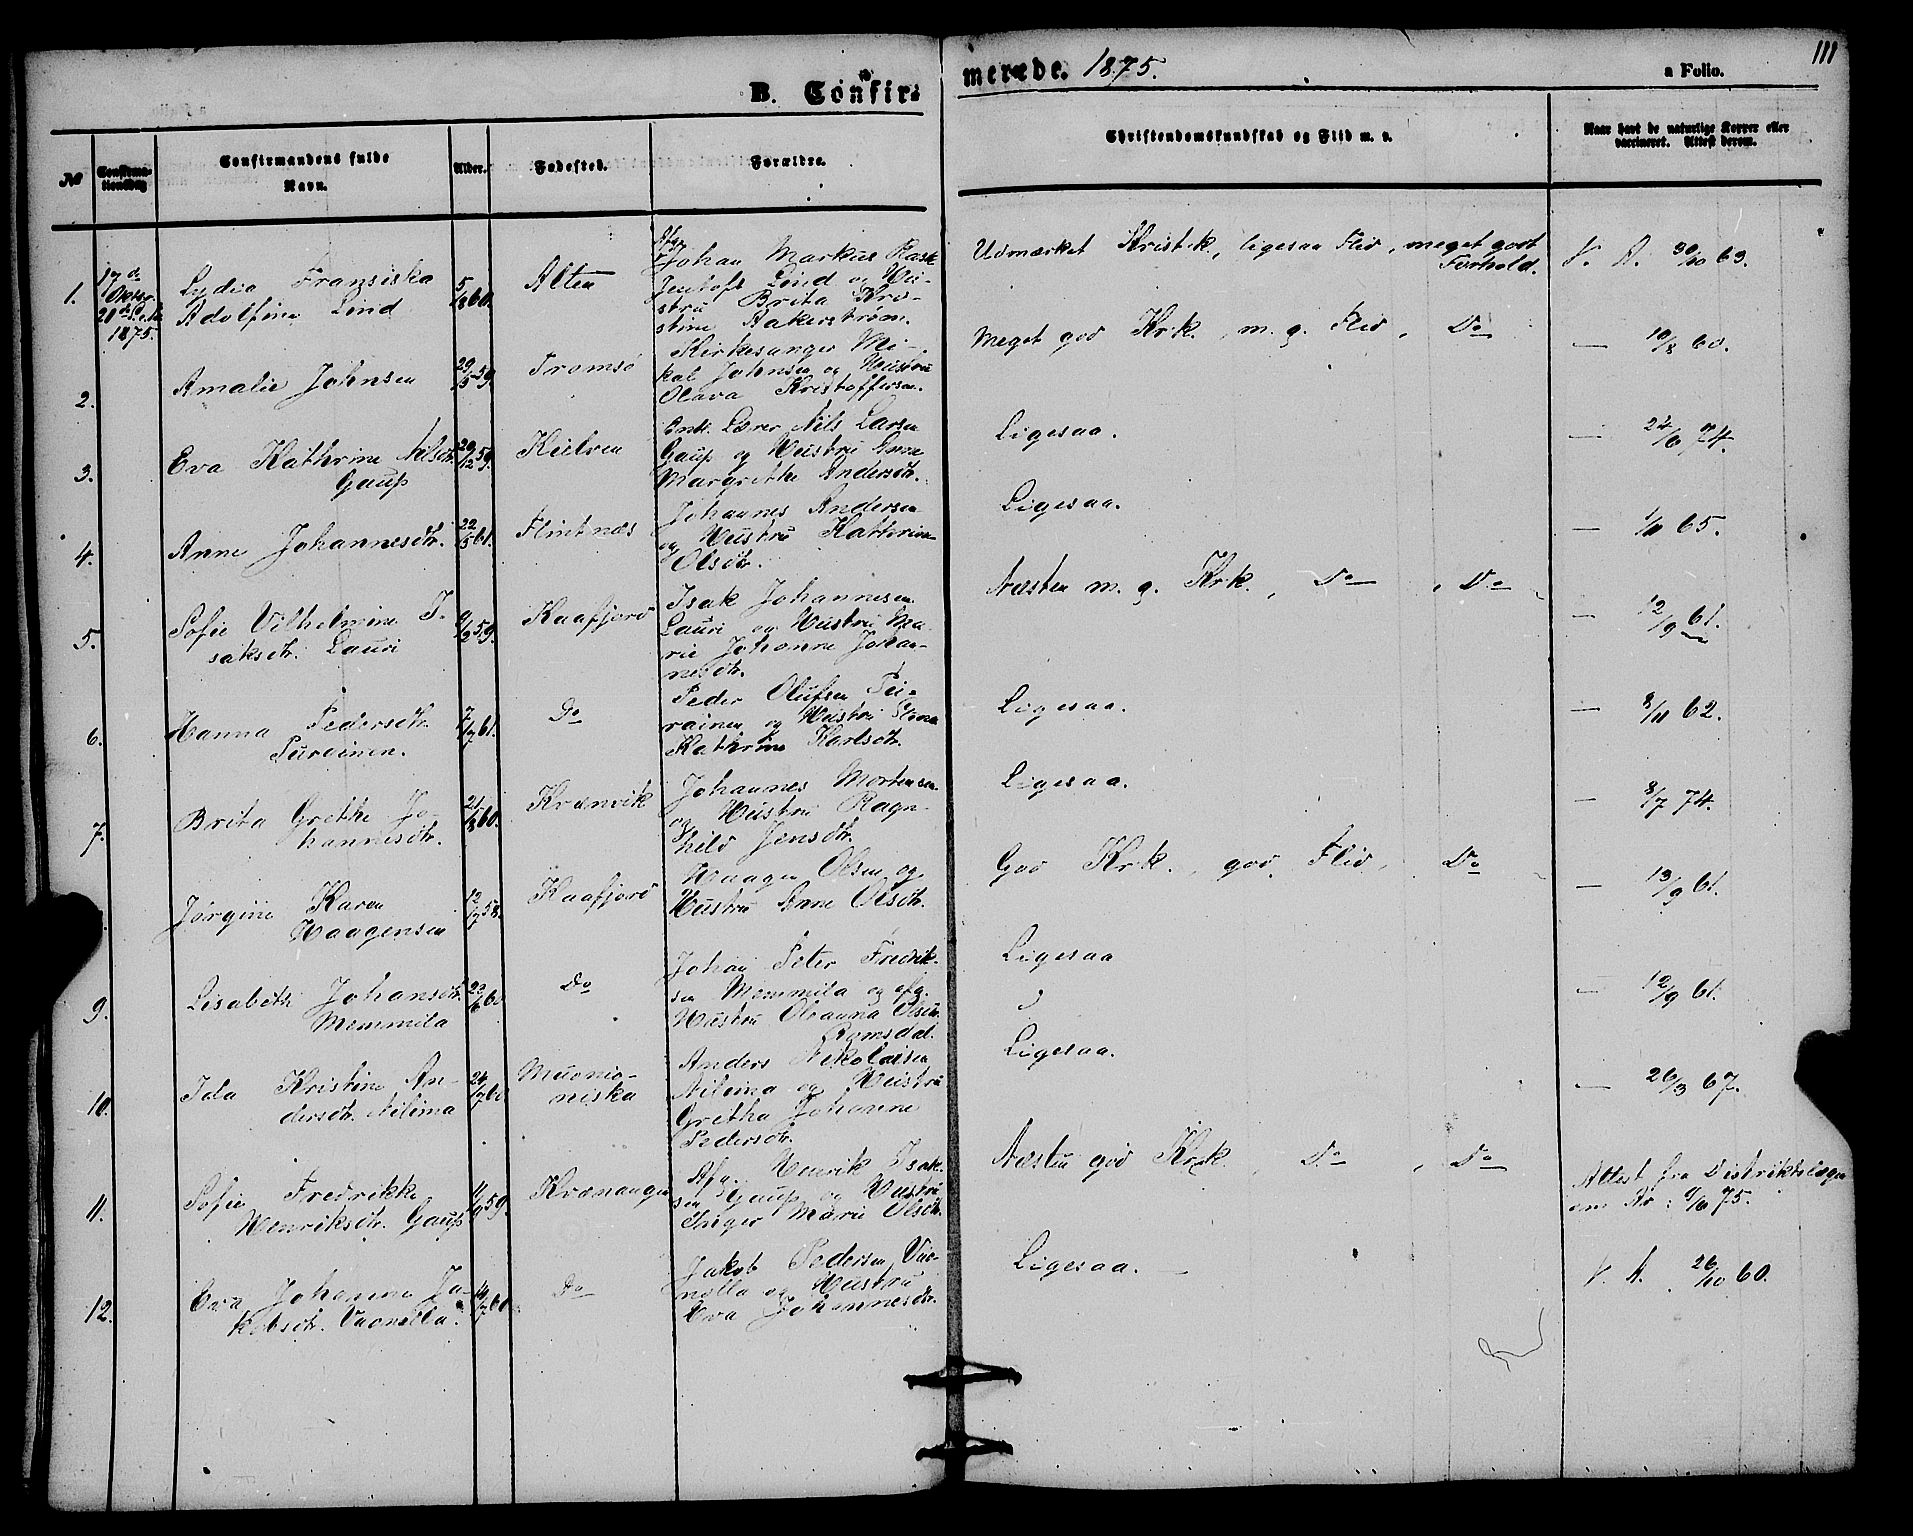 B. Confirmerede. 1875.
a Folio.
111
No
Confirmationsdag
Confirmandens fulde
Navn.
Alder.
Fødested.
Forældre.
Christendomskundskab og Flid m. v.
Naar havt de naturlige Kopper eller
vaccineret. Attest derom.
1.
1875.
Lydia Fransiska
Adolfine Lind
60.
Alten
Johan Markus
Lind og Hu-
stru Brita Kri-
stine Aakerstrøm.
Udmærket Kristk., ligesaa Flid, meget godt
Forhold.
V. A. 30/10 63.
2.
Amalie Johnsen
29/5 59.
Tromsø
Kirkesanger Mi-
kal Johnsen og Hustru
Olava Kristoffersen.
Meget god Krk., m. g. Flid, Do
— 10/8 60.
3.
Eva Kathrine Nilsdtr.
Gaup
29/12 59.
Lærer Nils Larsen
Gaup og Hustru Anne
Margrethe Andersdtr.
Ligesaa.
— 24/6 74.
4.
Anne Johannesdtr.
22/5 61.
Flintnæs
Johannes Andersen
og Hustru Kathrine
Olsdtr.
Ligesaa.
— 1/11 65.
5.
Sofie Vilhelmine I-
saksdtr. Lauri
59.
Kaafjord
Isak Johannesen
Lauri og Hustru Ma-
rie Johanne Johan-
nesdtr.
Næsten m. g. Krk., Do, Do
— 12/9 61.
6.
Hanna Pedersdtr.
7/7 61.
Do
Peder Olufsen Pei-
rainen og Hustru Stina
Kathrine Karlsdtr.
Ligesaa.
— 8/11 62.
7.
Brita Grethe Jo-
hannesdtr.
21/8 60.
Krænvik
Johannes Mortensen
og Hustru Ragn-
hild Jensdtr.
Ligesaa.
— 8/7 74.
Jørgine Karen
Haagensen
12/7 58.
Kaafjord
Haagen Olsen og
Hustru Anne Olsdtr.
God Krk., god Flid, Do
— 13/9 61.
9.
Lisabeth Johansdtr.
Memmila
60
Do
Johan Peter Fredrik-
sen Memmila og afg.
Hustru Oleanna Olsdtr.
Romsdal.
Ligesaa
— 12/9 61.
10.
Ida Kristine An-
dersdtr. Nilima
24/7 60
Muonio-
niska
Anders Nikolaisen
Nilima og Hustru
Gretha Johanne
Pedersdtr.
Ligesaa.
— 26/3 67.
11.
Sofie Fredrikke
Henriksdtr. Gaup
11/9 59.
Kvænangen
Afg. Henrik Isak-
sen Gaup og Hustru
Inger Marie Olsdtr.
Næsten god Krk., Do, Do
Attest fra Distriktslægen
75.
12.
Eva Johanne Ja-
kobsdtr. Vuonella.
60
Do
Jakob Pedersen Vuo-
nella og Hustru
Eva Johannesdtr.
Ligesaa.
V. A. 26/10 60.